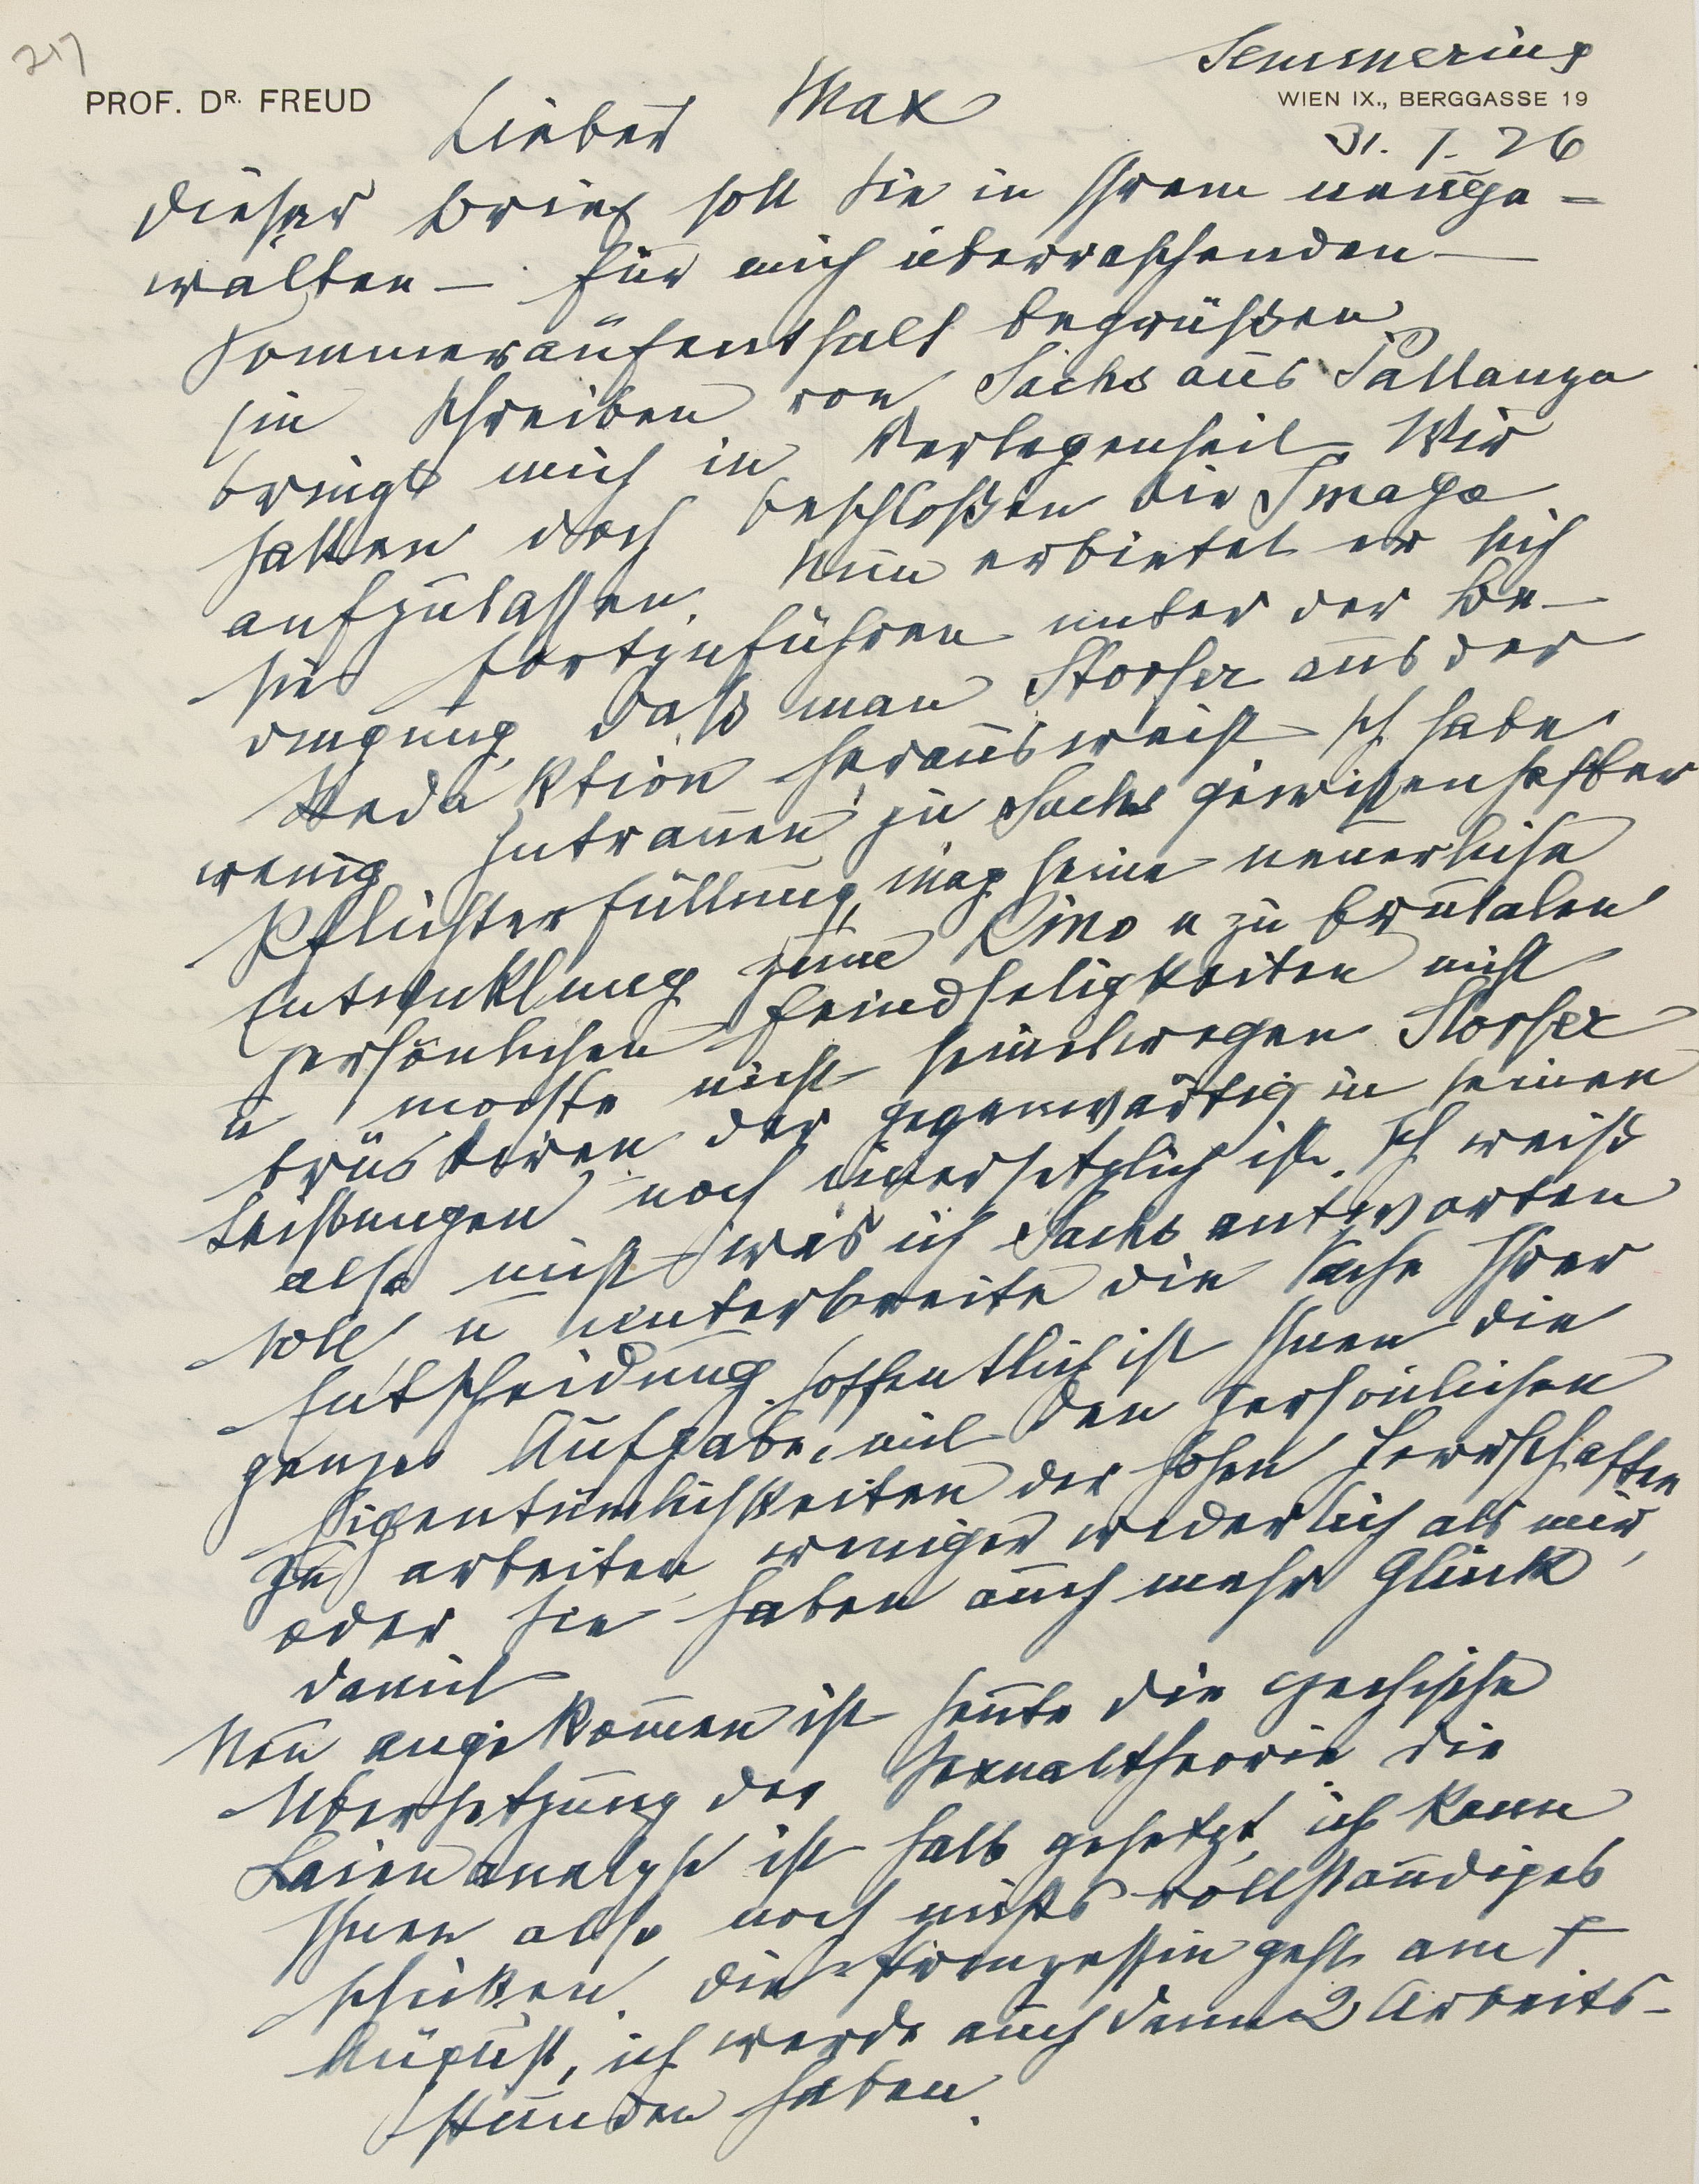 217
Semmering
PROF. DR. FREUD
WIEN IX., BERGGASSE 19
Lieber Max
31. 7. 26
Dieser Brief soll Sie in Ihrem neuge=
wälten — für mich überraschenden —
Sommeraufenthalt begrüßen
Ein Schreiben von Sachs aus Pallanza
bringt mich in Verlegenheit. Wir
hatten doch beschloßen die Imago
aufzulassen. Nun erbietet er sich
sie fortzuführen unter der Be-
dingung, daß man Storfer aus der
Redaktion herausweist. Ich habe
wenig Zutrauen zu Sachs gewissenhafter
Pflichterfüllung, mag seine neuerliche
Entwicklung zum Kino u zu brutalen
persönlichen Feindseligkeiten nicht
u mochte nicht seinetwegen Storfer
brüskiren der gegenwärtig in seinen
Leistungen noch unersetzlich ist. Ich weiß
also nicht was ich Sachs antworten
soll u unterbreite die Sache Ihrer
Entscheidung. Hoffentlich ist Ihnen die
ganze Aufgabe, mit den persönlichen
Eigentümlichkeiten der hohen Herrschaften
zu arbeiten weniger widerlich als mir,
oder Sie haben auch mehr Glück
damit
Neu angekommen ist heute die czechische
Übersetzung der Sexualtheorie die
Laienanalyse ist halb gesetzt, ich kann
Ihnen also noch nichts vollständiges
schicken. Die Prinzessin geht am 1
August, ich werde auch dann 2 Arbeits-
stunden haben.